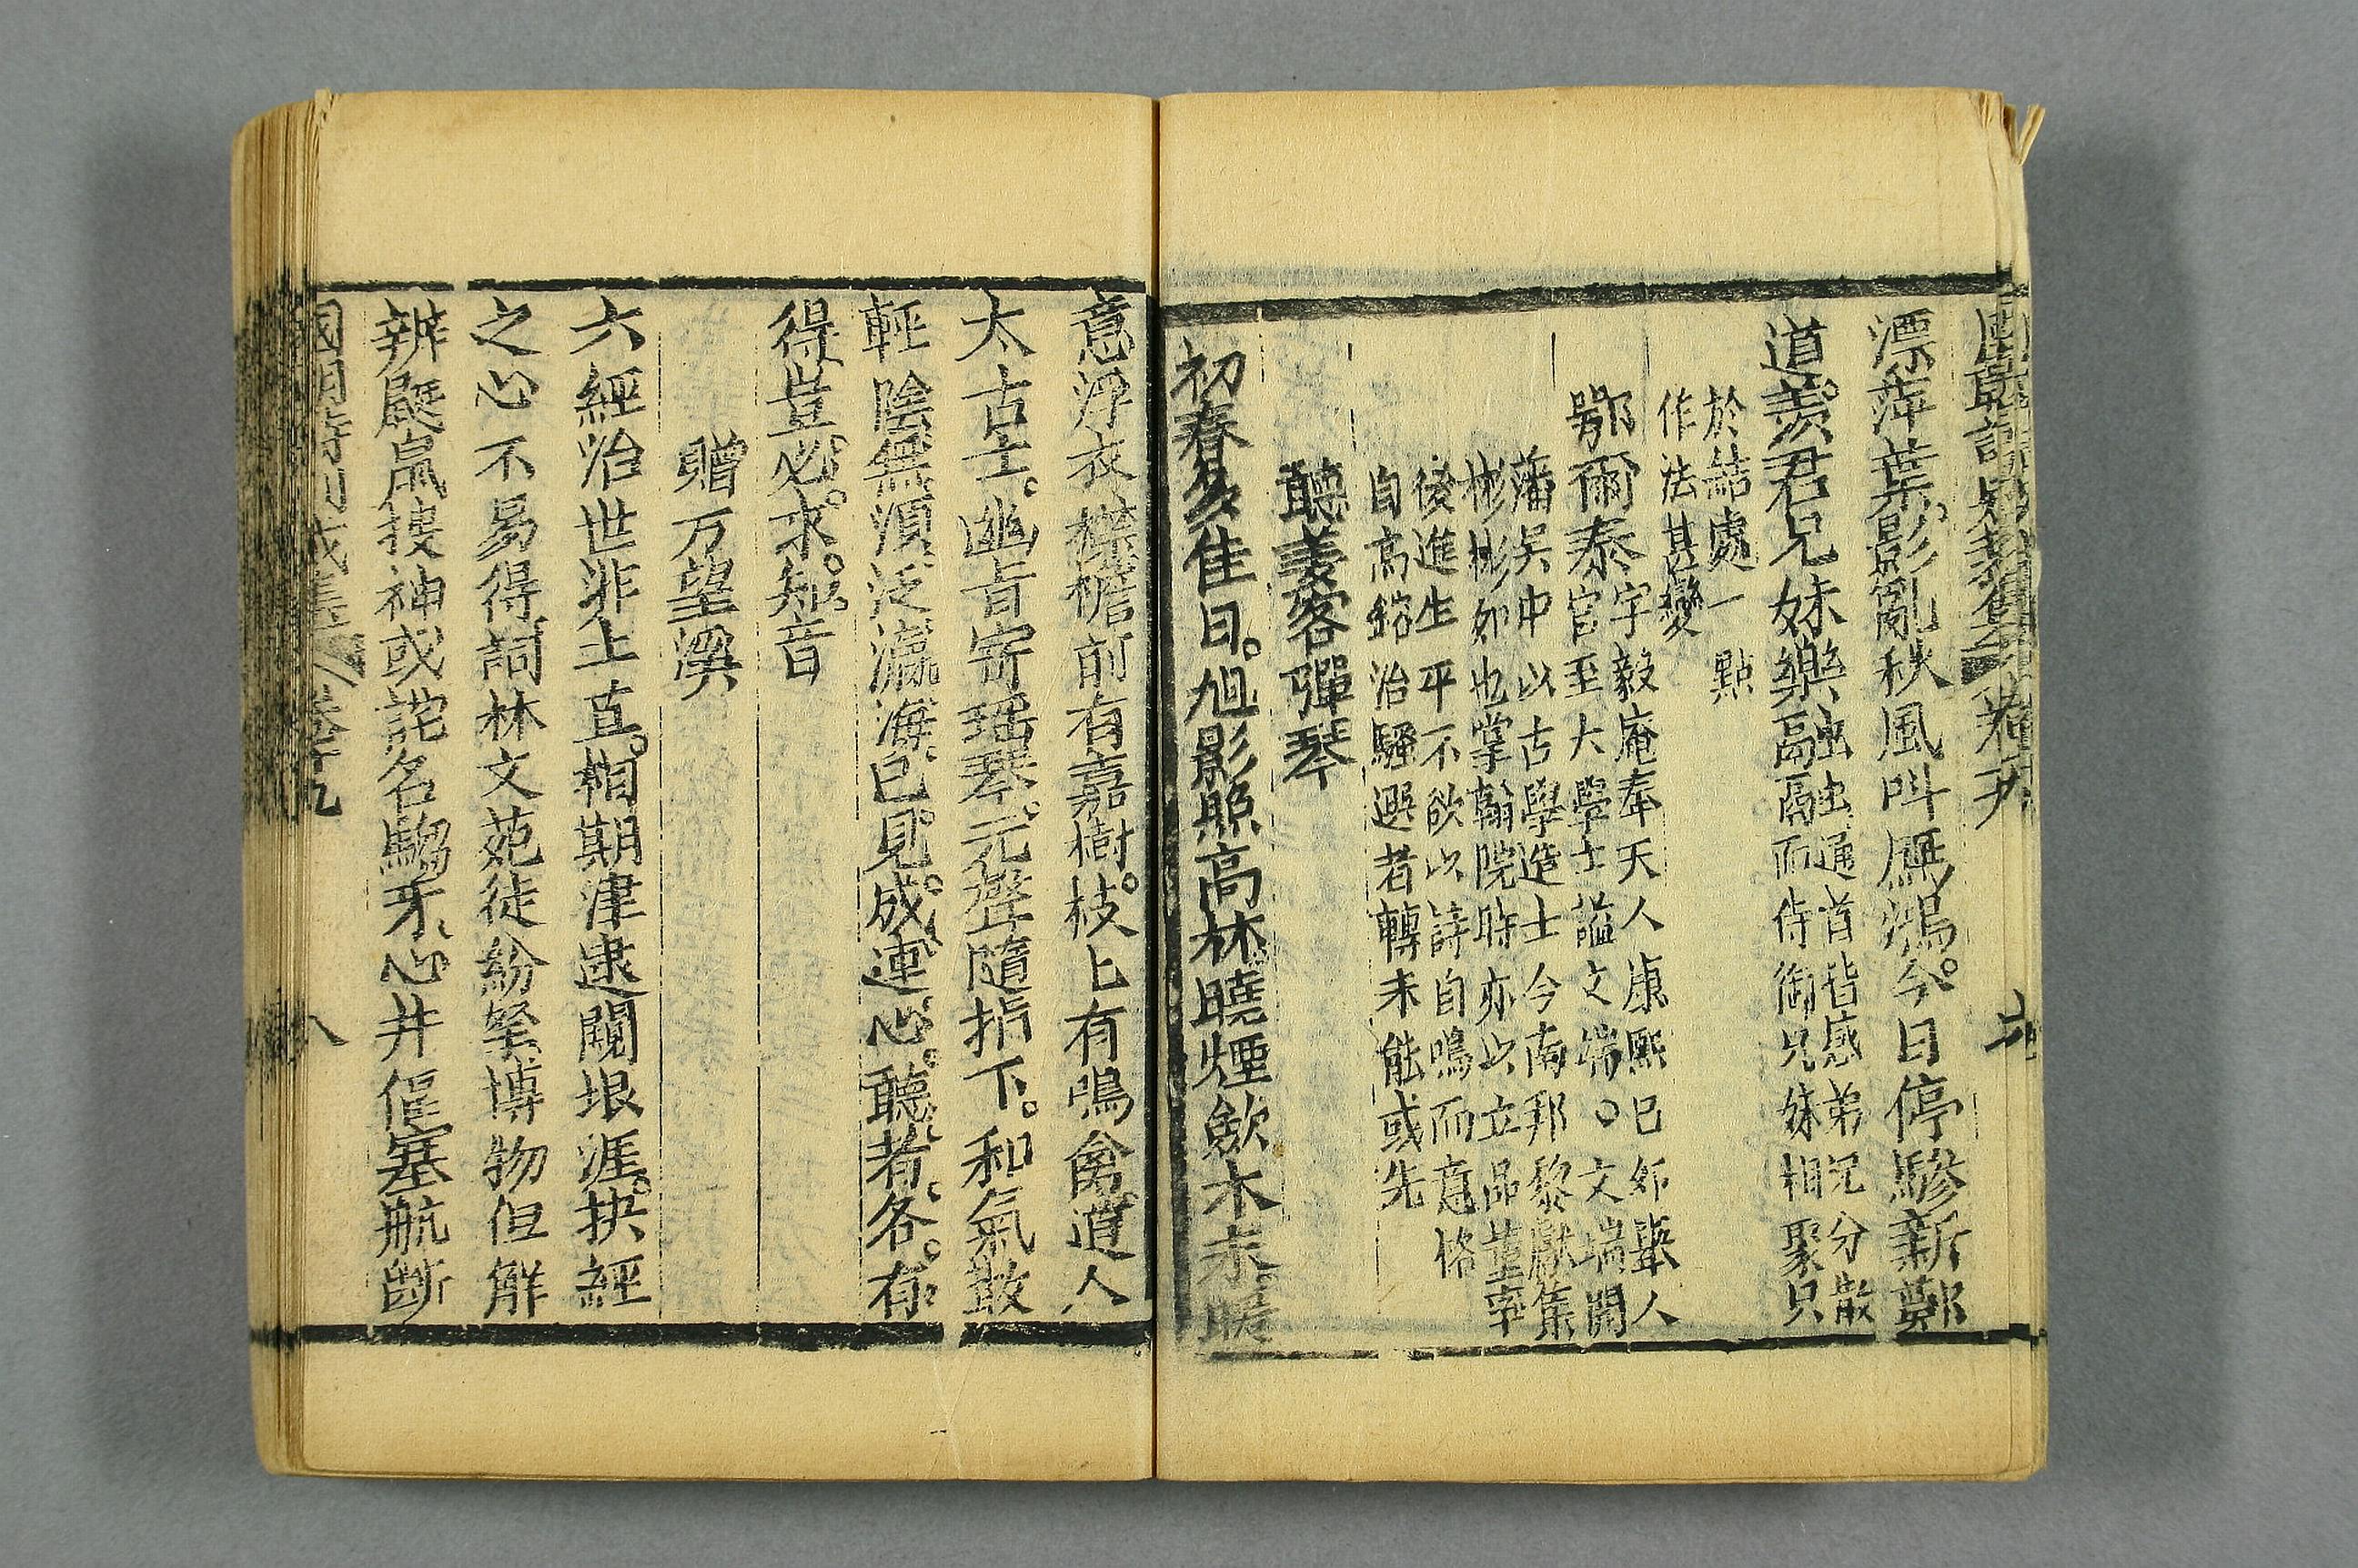 漂萍葉。影亂秋風叫鴈鴻。今日停驂新鄭
道。羨君兄妹樂融融通首皆感弟兄分散
融而侍御兄妹相聚只
於結處一點
作法甚變
鄂爾泰字毅庵奉天人康熙己卯舉人
官至大學士謚文端。文端開
藩吳中以古學造士今南邦黎獻集
彬彬如也掌翰院時亦以立品董率
後進生平不欲以詩自鳴而意格
自高鎔治騷選者轉未能或先
聽姜客彈琴
初春多佳日。旭影照高林。曉煙斂木末。暖
意浮衣襟。檐前有嘉樹。枝上有鳴禽。道人
太古士。幽旨寄瑤琴。元聲隨指下。和氣散
輕陰。無須泛瀛海。已見成連心。聽者各有
得。豈必求知音
贈方望溪
六經治世非土直。相期津逮闚垠涯。抉經
之心不易得。詞林文苑徒紛拏。博物但解
辨鼮鼠。搜神或詫名騶牙。心井偓塞航斷
八